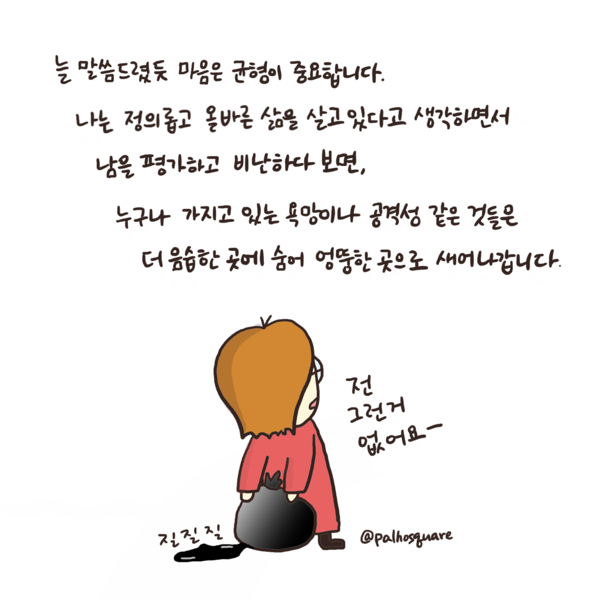 늘 말씀드렸듯 마음은 균형이 중요합니다.
나는 정의롭고 올바른 삶을 살고 있다고 생각하면서
남을 평가하고 비난하다 보면,
누구나 가지고 있는 욕망이나 공격성 같은 것들은
더 음습한 곳에 숨어 엉뚱한 곳으로 새어나갑니다.
전
그런거
없어요ー
질질질
@palhosquare